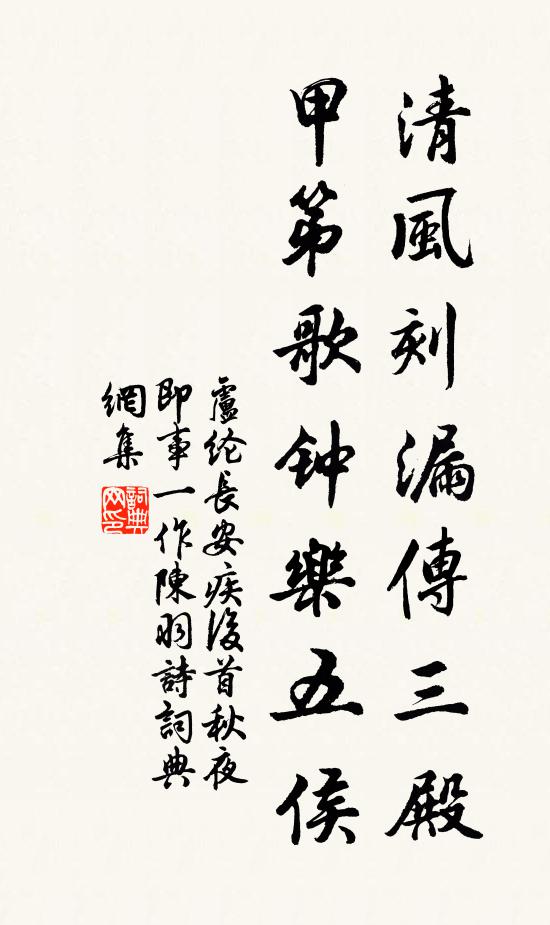 清風刻漏傳三殿
甲第歌钟樂五侯
盧纶長安疾後首秋夜
即事一作陳羽詩詞典
網集
詞典網印